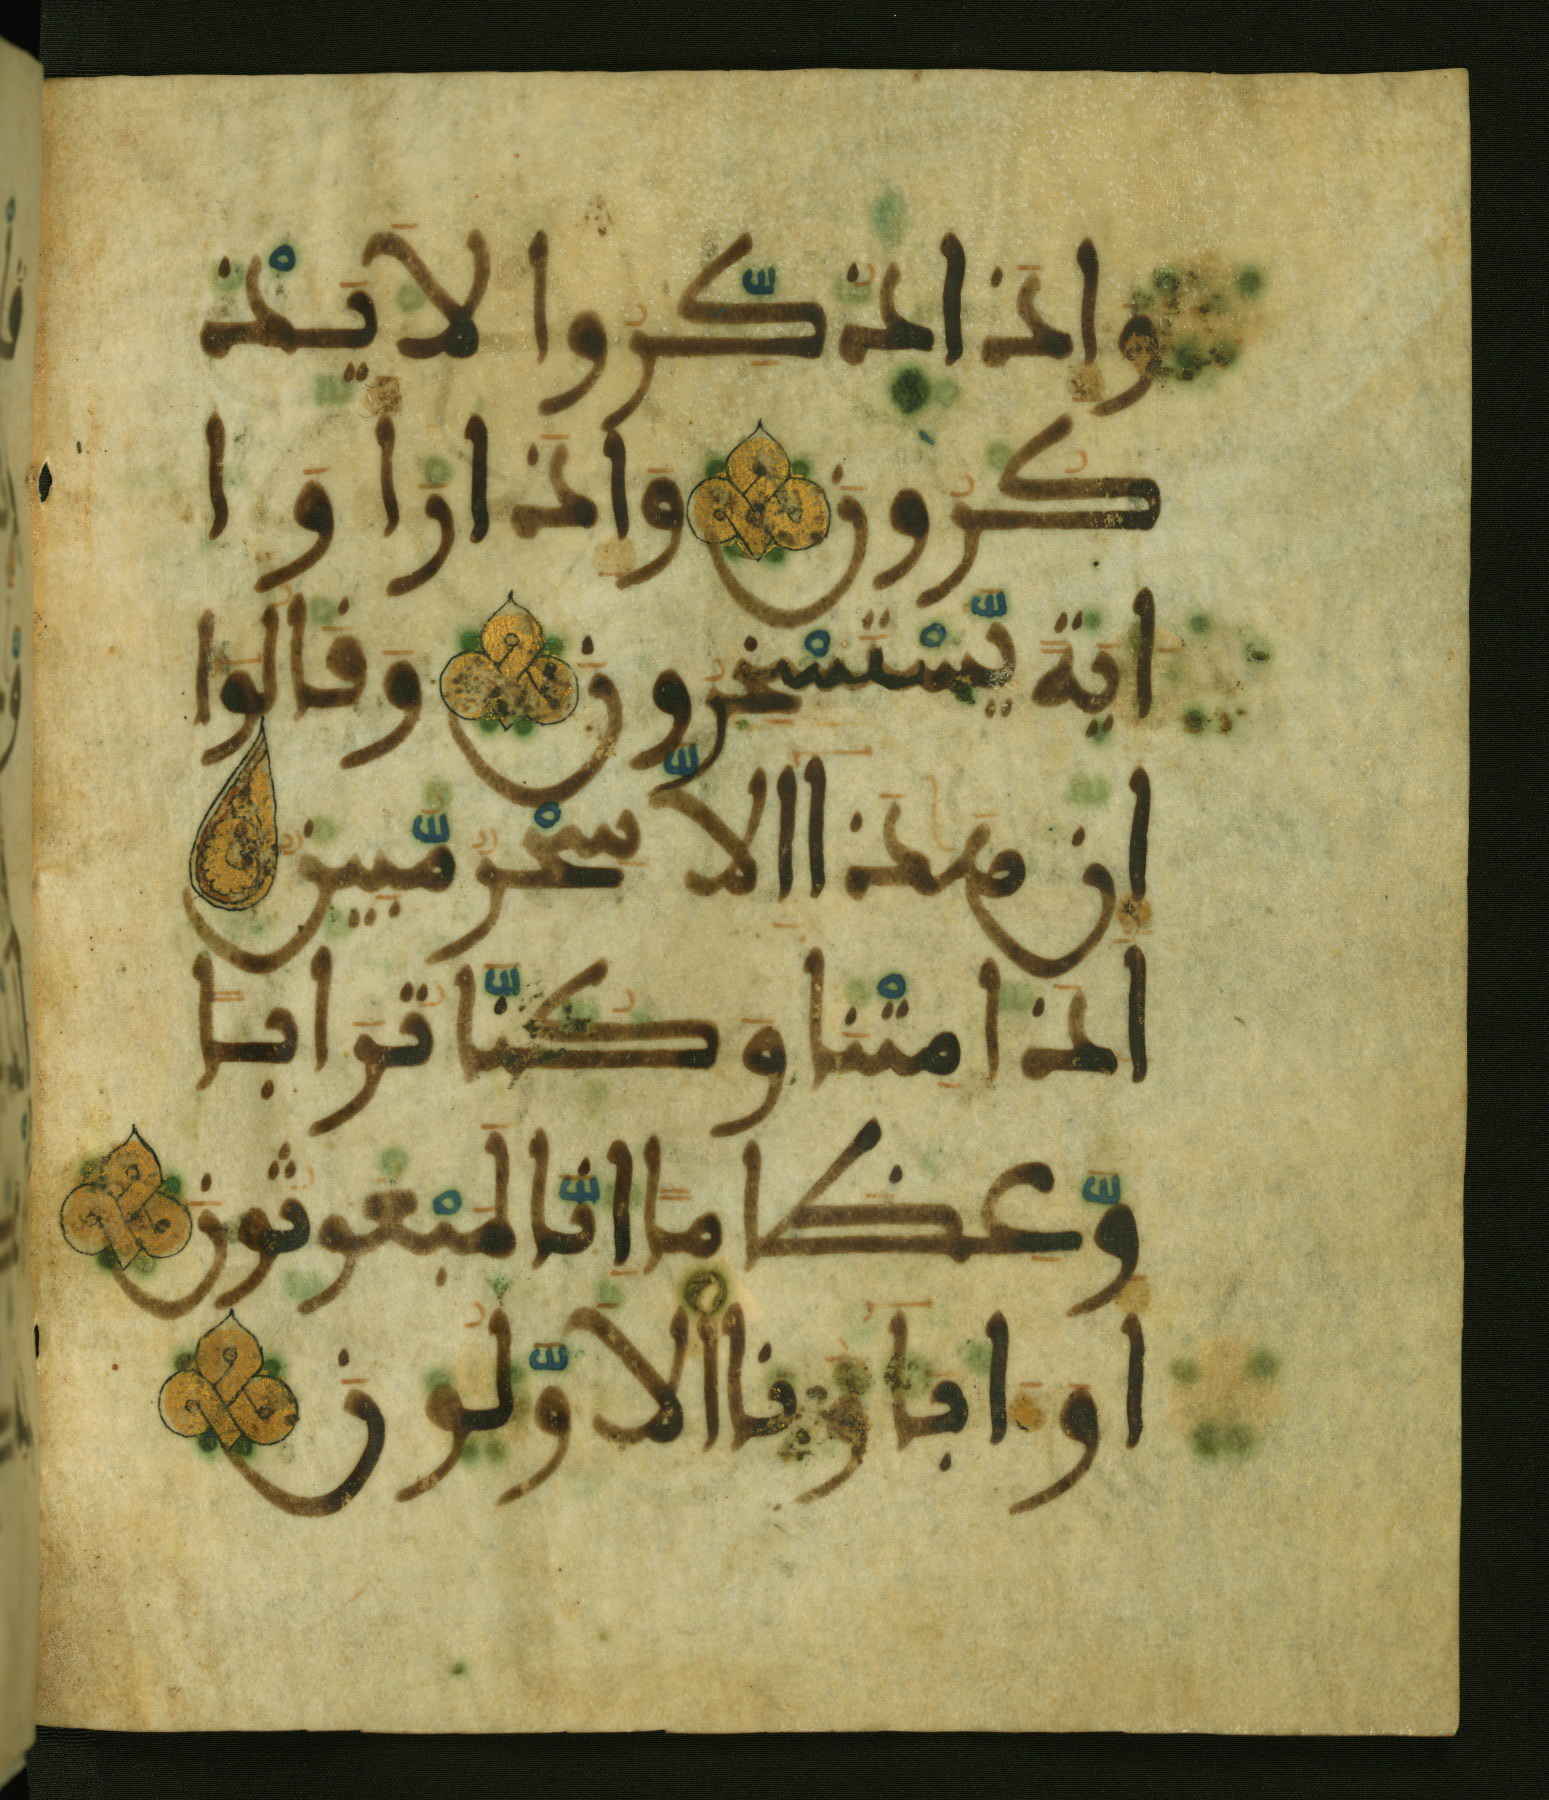 وَإِذَا ذُكِّرُوا لَا يَذْ
كُرُونَ وَإِذَا رَأَوَا
ايَةً يَّسْتَسْخِرُونَ وَقَالُوا
إِنْ هَذَا إِلَّا سِحْرٌ مُّبِينٌ
اَ۟ذَا مِتْنَا وَكُنَّا تُرَابًا
وَّعِظَامًا اِنَّا لَمَبْعُوثُونَ
اَوَ ابَاؤُنَا الَاوَّلُونَ